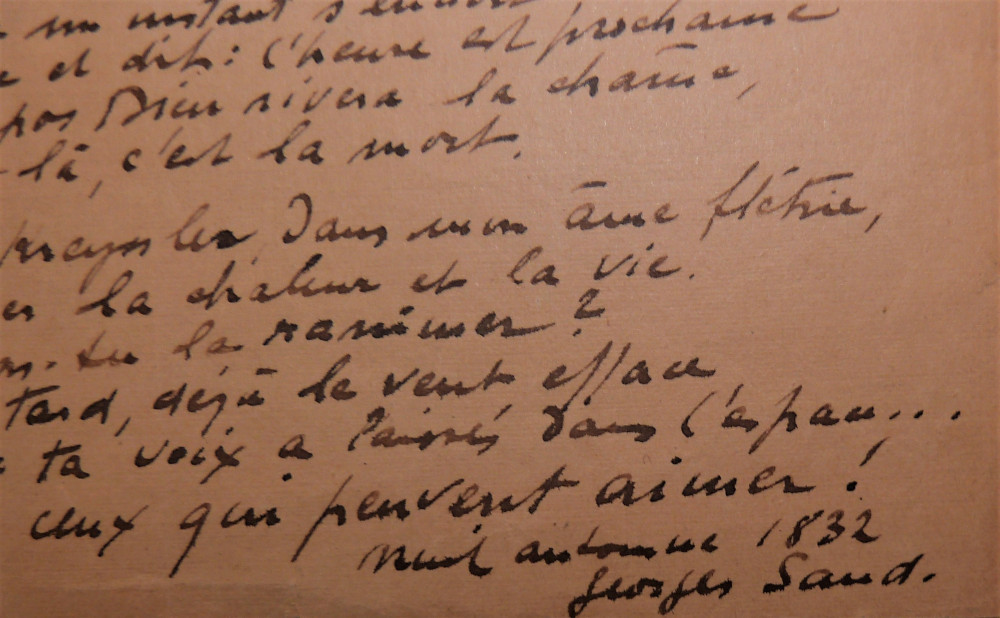 un instant s'endort
et dit : l'heure est prochaine
pos Dieu rivera la chaîne,
là, c'est la mort.
dans mon âme flétrie,
la chaleur et la vie.
tu la ranimer ?
tard, déjà le vent efface
ta voix a laissés dans l'espace...
ceux qui peuvent aimer !
Nuit automne 1832
Georges Sand.